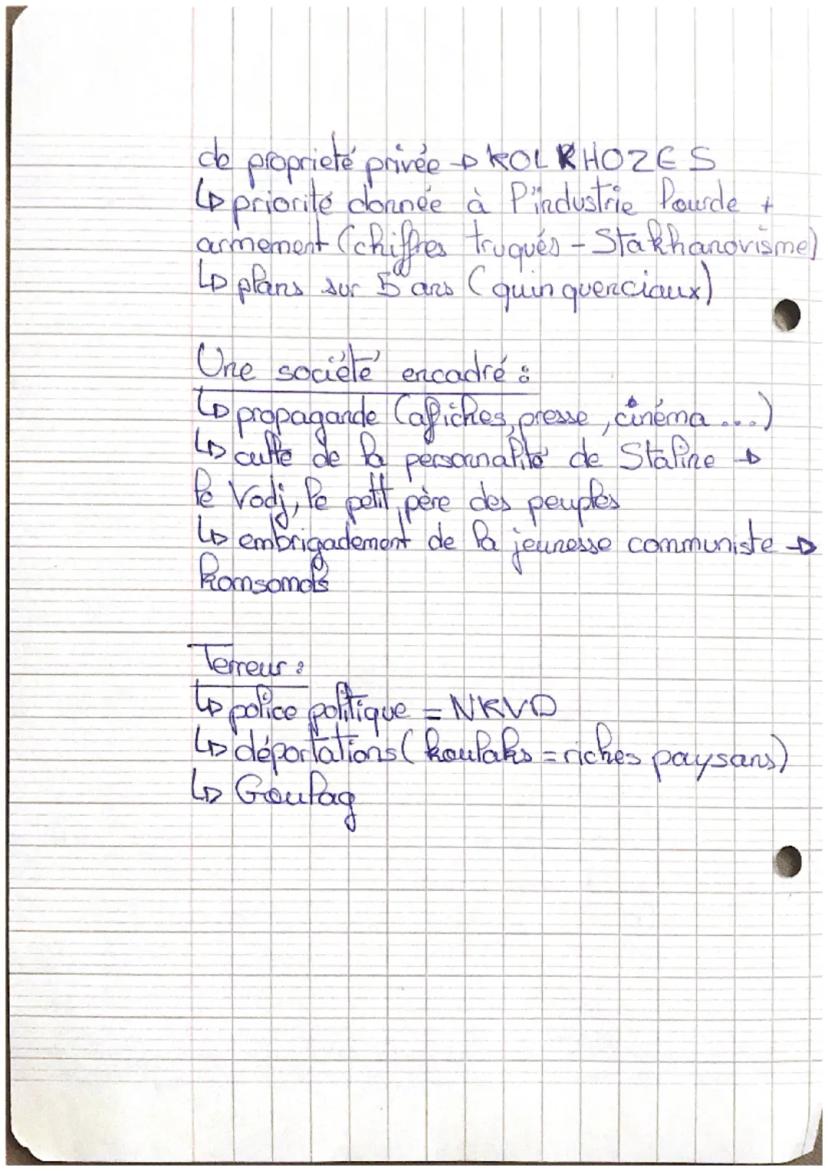 de proprieté privée → KOLKHOZES
↳ priorité donnée à l'industrie lourde +
armement (chiffres truqués - Stakhanovisme)
↳ plans sur 5 ans (quinquenciaux)
Une société encadré :
↳ propagande (afiches, presse, cinéma ...)
↳ culte de la personnalité de Staline →
le Vodj, le petit père des peuples
↳ embrigadement de la jeunesse communiste →
komsomols
Terreur :
↳ police politique = NKVD
↳ déportations (koulaks = riches paysans)
↳ Goulag